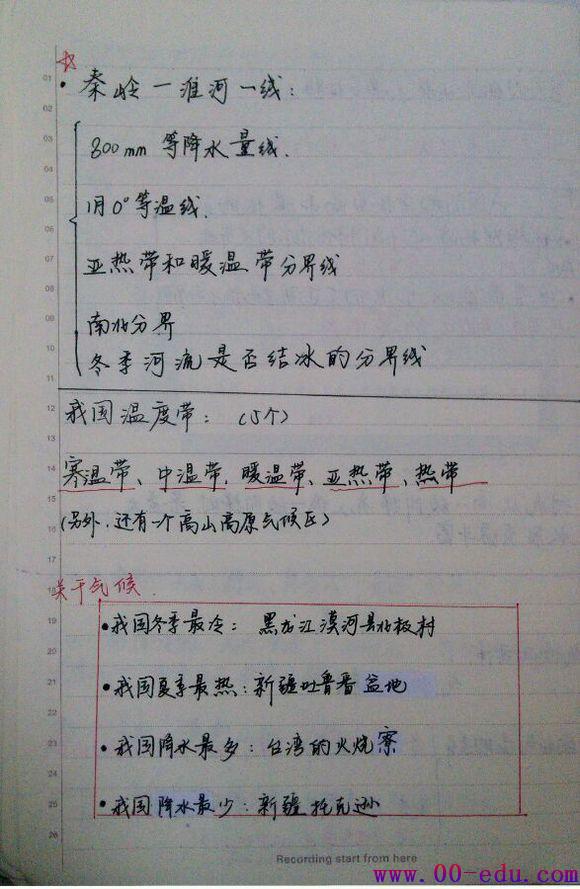 01
·秦岭—淮河一线:
02
03
800mm 等降水量线.
04
05
1月0°等温线.
06
07
亚热带和暖温带分界线
08
09
南北分界
10
冬季河流是否结冰的分界线
11
12
我国温度带: (5个)
13
14
寒温带、中温带、暖温带、亚热带、热带
15
16
(另外,还有一个高山高原气候区)
17
18
关于气候.
19
•我国冬季最冷: 黑龙江漠河县北极村
20
21
•我国夏季最热:新疆吐鲁番盆地
22
23
•我国降水最多:台湾的火烧寮
24
25
•我国降水最少:新疆托克逊
26
Recording start from here
www.00-edu.com